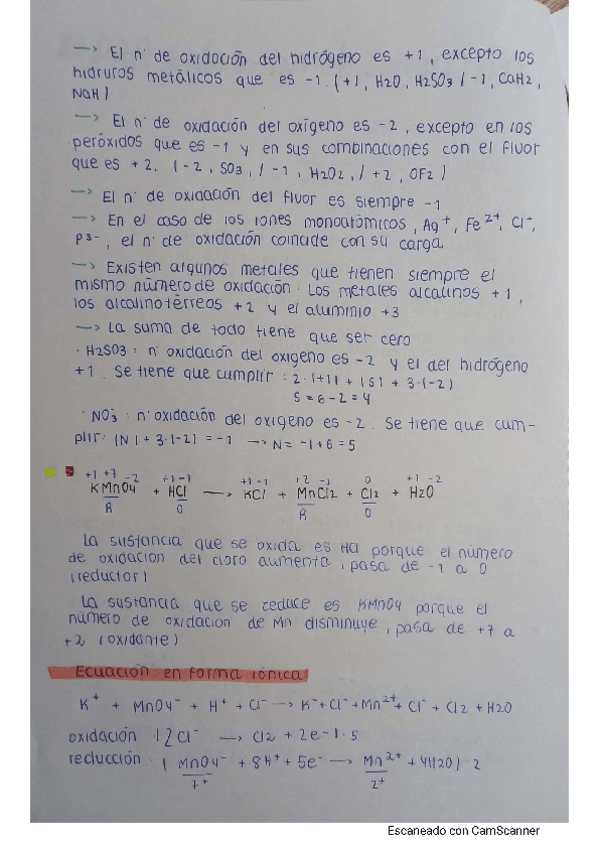 —> El nº de oxidación del hidrógeno es +1, excepto los
hidruros metálicos que es -1. (+1, H2O, H2SO3 / -1, CaH2,
NaH)
—> El nº de oxidación del oxígeno es -2, excepto en los
peróxidos que es -1 y en sus combinaciones con el fluor
que es +2. (-2, SO3, / -1, H2O2, / +2, OF2)
—> El nº de oxidación del fluor es siempre -1
—> En el caso de los iones monoatómicos, Ag+, Fe2+, Cl-,
P3-, el nº de oxidación coincide con su carga
—> Existen algunos metales que tienen siempre el
mismo número de oxidación. Los metales alcalinos +1,
los alcalinotérreos +2 y el aluminio +3
—> La suma de todo tiene que ser cero
· H2SO3: nº oxidación del oxígeno es -2 y el del hidrógeno
+1. Se tiene que cumplir: 2·(+1) + (S) + 3·(-2)
S = 6-2 = 4
· NO3-: nº oxidación del oxígeno es -2. Se tiene que cum-
plir: (N) + 3·(-2) = -1 —> N = -1+6 = 5
+1 +7 -2 +1 -1 +1 -1 +2 -1 0 +1 -2
KMnO4 + HCl —> KCl + MnCl2 + Cl2 + H2O
R O R O
La sustancia que se oxida es HCl porque el número
de oxidación del cloro aumenta, pasa de -1 a 0
(reductor)
La sustancia que se reduce es KMnO4 porque el
número de oxidacion de Mn disminuye, pasa de +7 a
+2 (oxidante)
Ecuación en forma iónica
K+ + MnO4- + H+ + Cl- —> K- + Cl- + Mn2+ + Cl- + Cl2 + H2O
oxidación (2Cl- —> Cl2 + 2e-)·5
reducción (MnO4- + 8H+ + 5e- —> Mn2+ + 4H2O)·2
7+ 2+
Escaneado con CamScanner